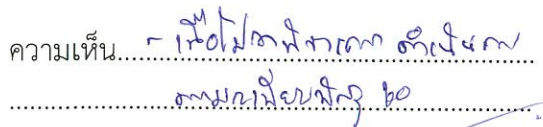 ความเห็น - เพื่อโปรดพิจารณา ดำเนินการ
ตามระเบียบพัสดุ ๒๐